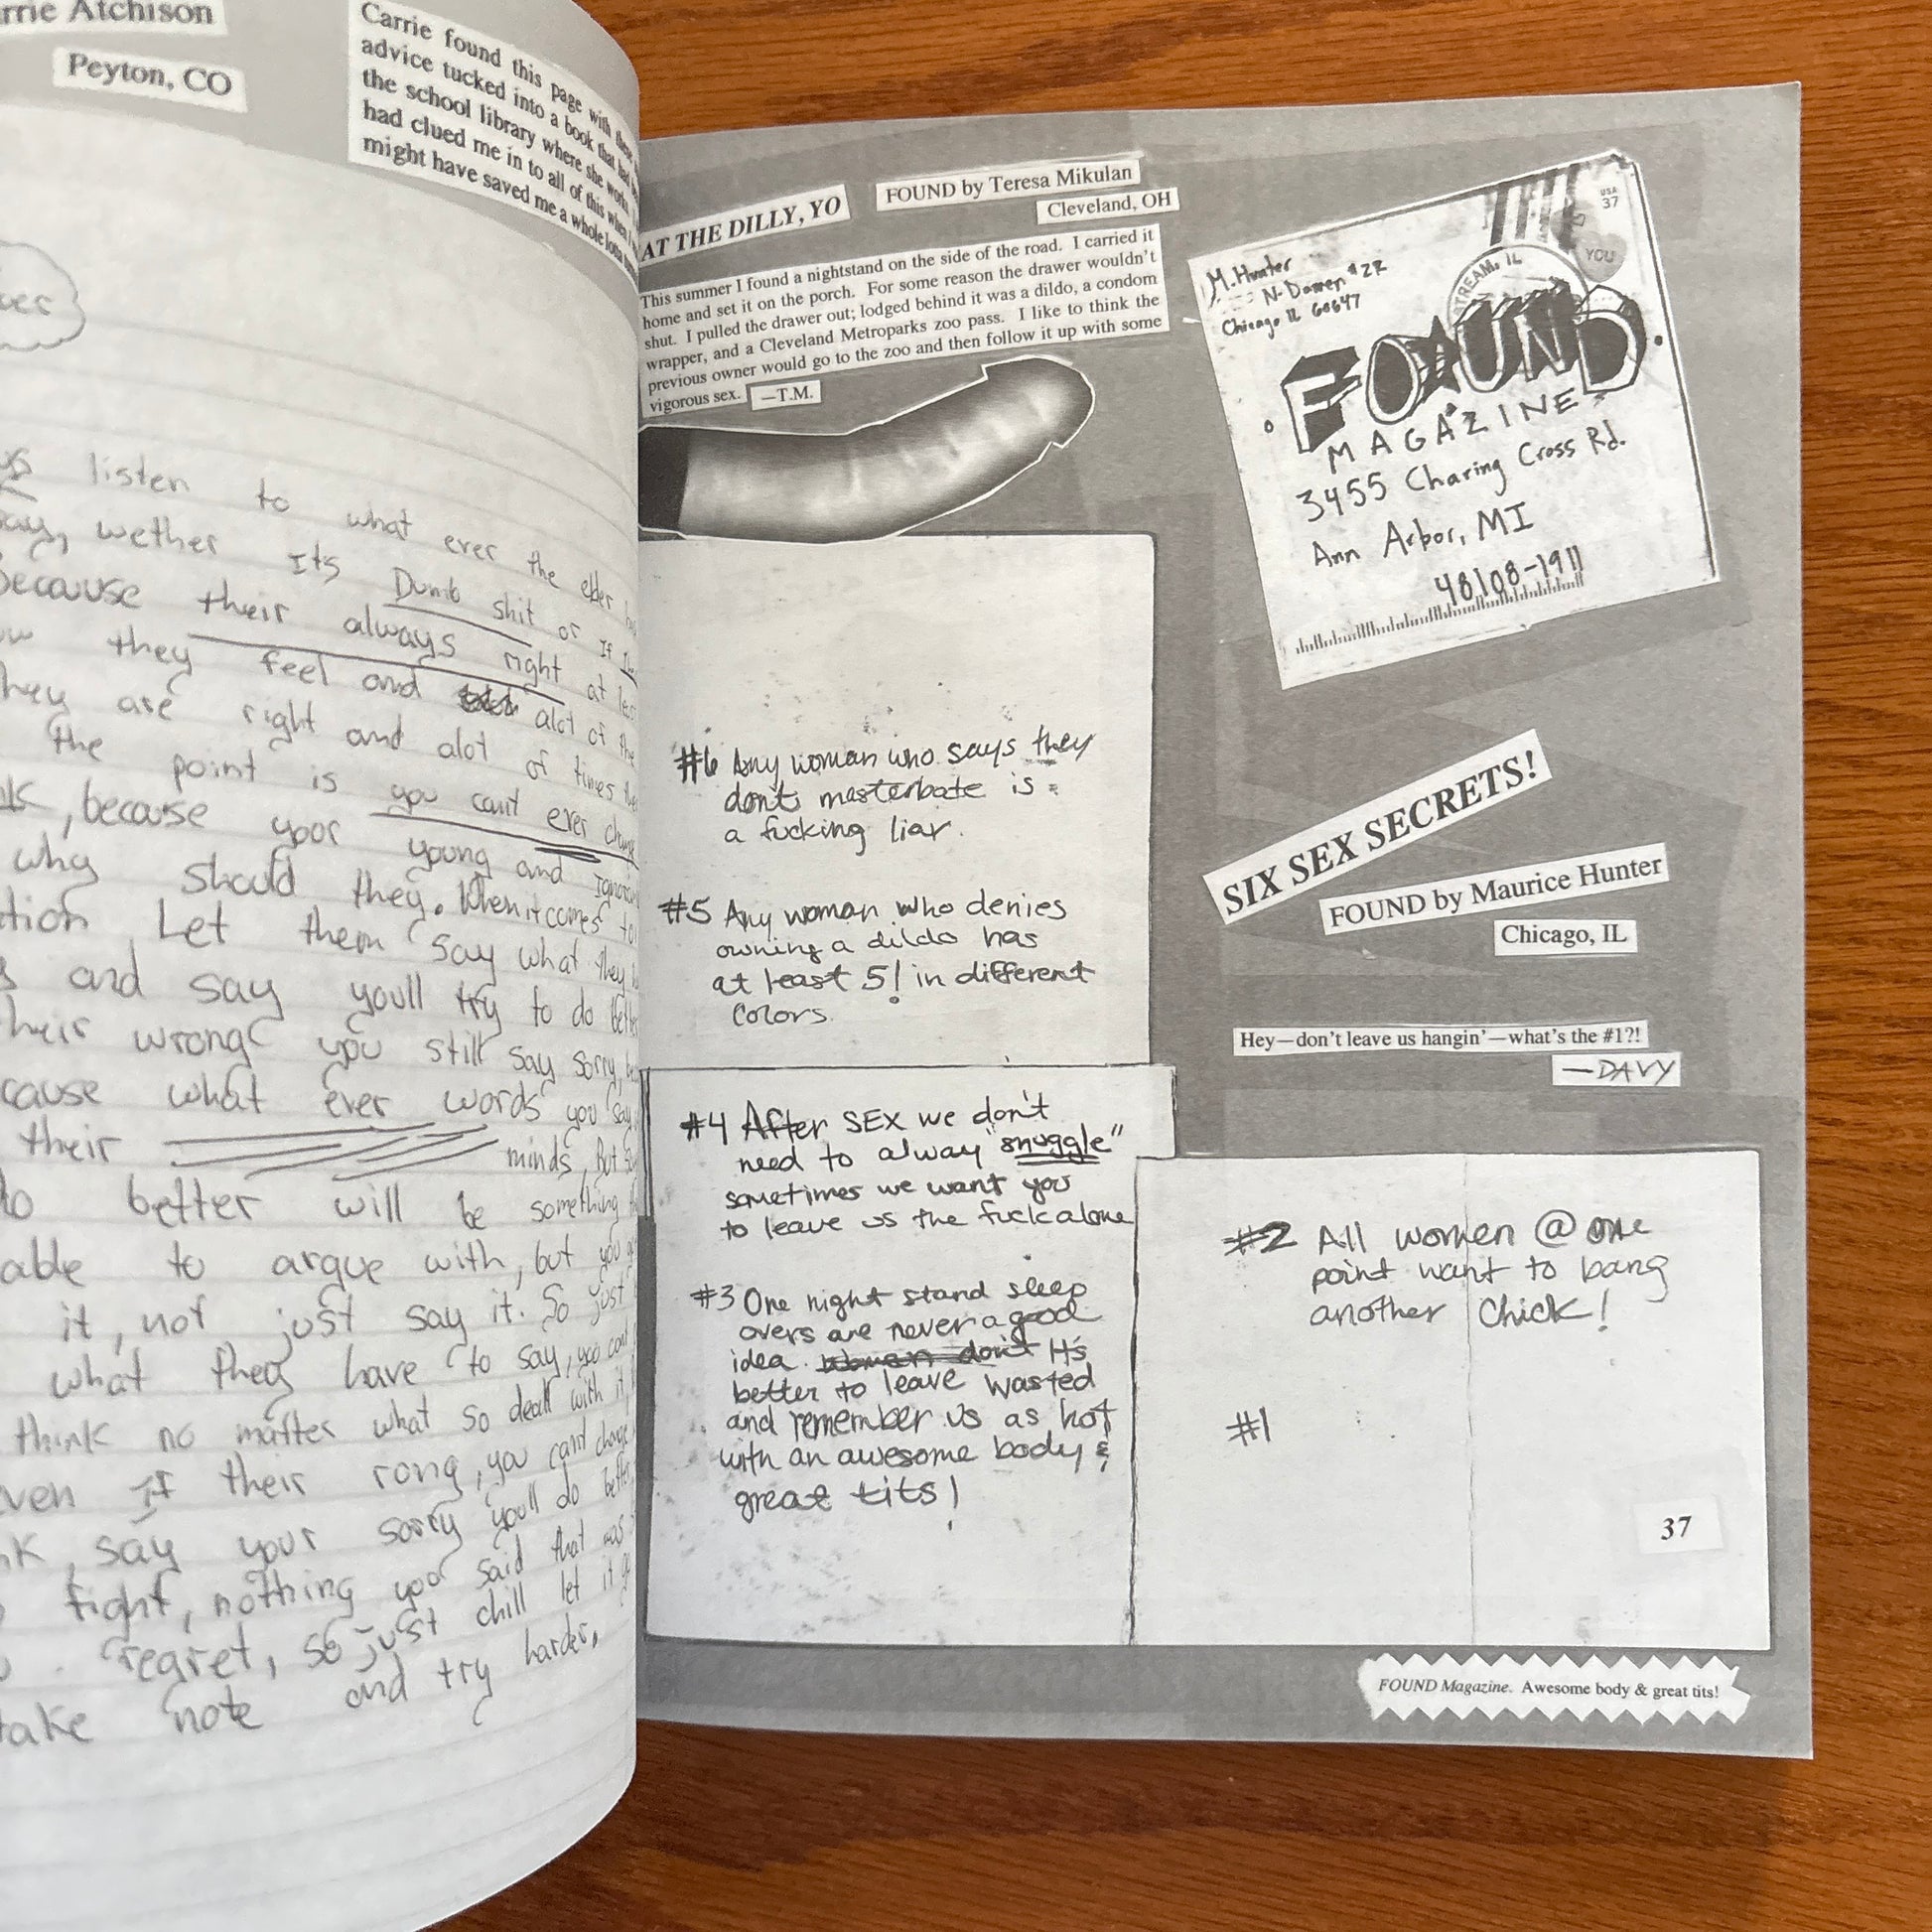 rrie Atchison
Peyton, CO
Carrie found this page with these
advice tucked into a book that had
the school library where she works.
had clued me in to all of this when I
might have saved me a whole lotta
listen to what ever the elder
wether It's Dumb shit or If
because their always right at
they feel and alot of the
they are right and alot of times
the point is you cant ever
because your young and
why should they. When it comes to
Let them say what they
and say youll try to do better
wrong you still say sorry,
cause what ever words you say
their
minds, But
better will be something
able to argue with, but you
it, not just say it. So just
what they have to say, you
think no matter what so deall with it,
even If their rong, you cant change
say your sorry youll do better
fight, nothing you said that was
regret, so just chill let it
take note and try harder.
AT THE DILLY, YO
FOUND by Teresa Mikulan
Cleveland, OH
This summer I found a nightstand on the side of the road. I carried it
home and set it on the porch. For some reason the drawer wouldn't
shut. I pulled the drawer out; lodged behind it was a dildo, a condom
wrapper, and a Cleveland Metroparks zoo pass. I like to think the
previous owner would go to the zoo and then follow it up with some
vigorous sex. —T.M.
M. Hunter
N. Damen #2R
Chicago IL 60647
USA
37
YOU
STREAM, IL
FOUND
MAGAZINE
3455 Charing Cross Rd.
Ann Arbor, MI
48108-1911
SIX SEX SECRETS!
FOUND by Maurice Hunter
Chicago, IL
Hey—don't leave us hangin'—what's the #1?!
—DAVY
#6 Any woman who says they
don't masterbate is
a fucking liar.
#5 Any woman who denies
owning a dildo has
at least 5! in different
colors.
#4 After SEX we don't
need to alway "snuggle"
sometimes we want you
to leave us the fuck alone
#3 One night stand sleep
overs are never a good
idea. Women don't It's
better to leave wasted
and remember us as hot
with an awesome body &
great tits!
#2 All women @ one
point want to bang
another chick!
#1
37
FOUND Magazine. Awesome body & great tits!